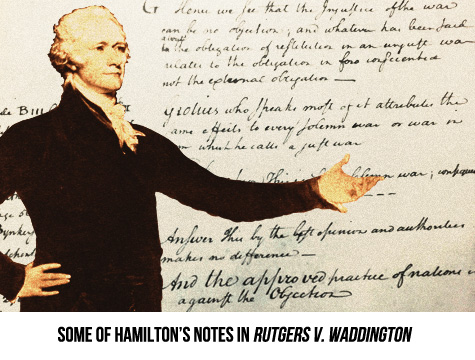 Hence we see that the Injustice of the war
can be no objection; and whatever has been said
about
to the obligation of restitution in an unjust war
relates to the obligation in foro conscientia
not the external obligation —
Grotius who speaks most of it attributes the
same effects to every solemn war or war in
form which he calls a just war
This is solemn war;
Answer This by the best opinion and authorities
makes no difference —
And the approved practice of nations is
against the Objection
SOME OF HAMILTON'S NOTES IN RUTGERS V. WADDINGTON